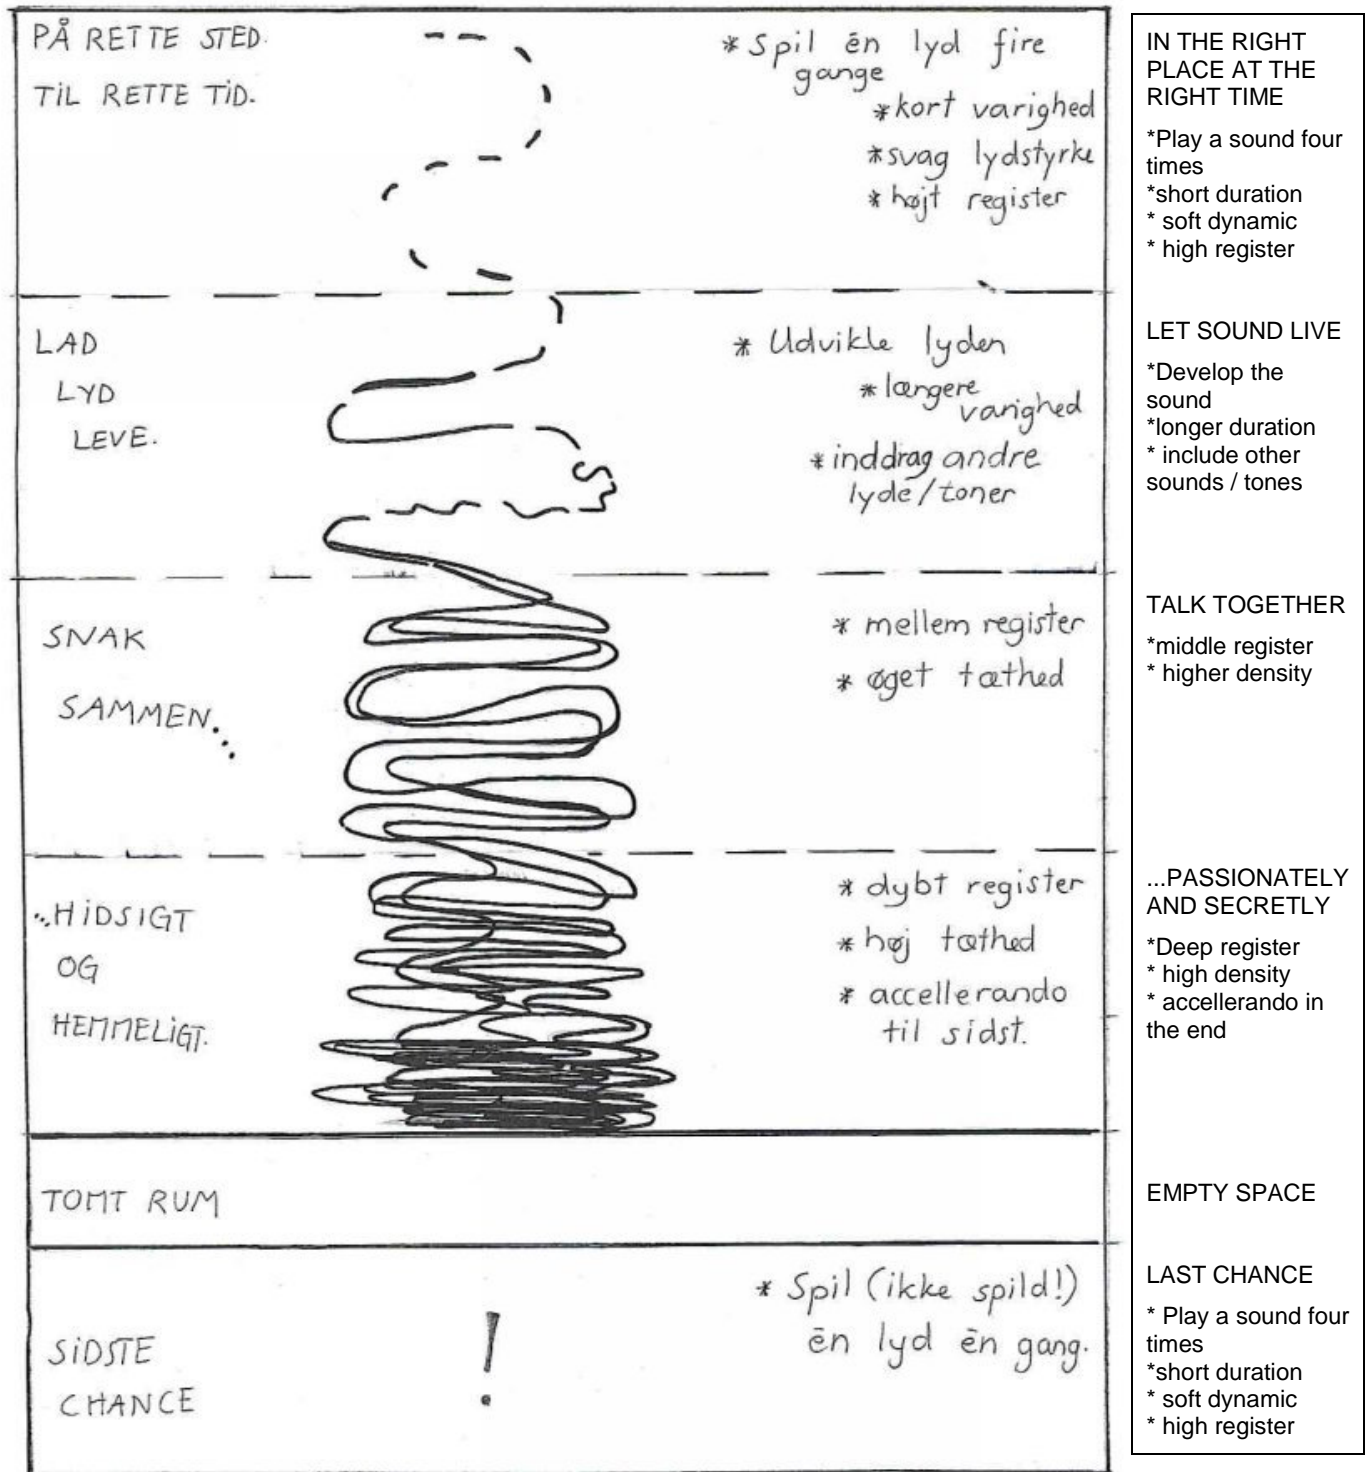 PÅ RETTE STED.
TIL RETTE TID.
* Spil én lyd fire
gange
* kort varighed
* svag lydstyrke
* højt register
LAD
LYD
LEVE.
* Udvikle lyden
* længere
varighed
* inddrag andre
lyde/toner
SNAK
SAMMEN....
* mellem register
* øget tæthed
...HIDSIGT
OG
HEMMELIGT.
* dybt register
* høj tæthed
* accellerando
til sidst.
TOMT RUM
SIDSTE
CHANCE
!
* Spil (ikke spild!)
én lyd én gang.
IN THE RIGHT
PLACE AT THE
RIGHT TIME
*Play a sound four
times
*short duration
* soft dynamic
* high register
LET SOUND LIVE
*Develop the
sound
*longer duration
* include other
sounds / tones
TALK TOGETHER
*middle register
* higher density
...PASSIONATELY
AND SECRETLY
*Deep register
* high density
* accellerando in
the end
EMPTY SPACE
LAST CHANCE
* Play a sound four
times
*short duration
* soft dynamic
* high register